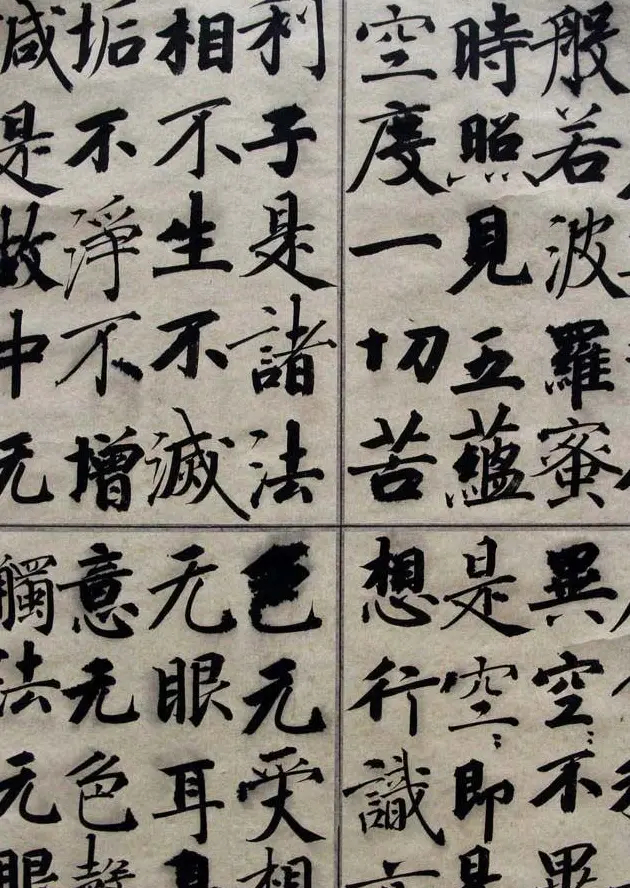 般若波羅蜜
時照見五蘊
空度一切苦
利子是諸法
相不生不滅
垢不淨不增
減是故中无
異空〻不異
是空〻即是
想行識
色无受想
无眼耳
意无色聲
觸法无眼